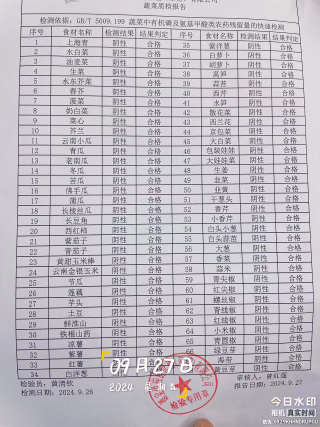 蔬菜质检报告
检测依据: GB/T 5009.199 蔬菜中有机磷及氨基甲酸类农药残留量的快速检测
序号 食材名称 检测结果 结果判定 序号 食材名称 检测结果 结果判定
1 上海青 阴性 合格 35 紫洋葱 阴性 合格
2 水白菜 阴性 合格 36 白萝卜 阴性 合格
3 油麦菜 阴性 合格 37 胡萝卜 阴性 合格
4 生菜 阴性 合格 38 莴笋 阴性 合格
5 水东芥菜 阴性 合格 39 蒜苔 阴性 合格
6 春芥 阴性 合格 40 西芹 阴性 合格
7 菠菜 阴性 合格 41 水笋 阴性 合格
8 奶白菜 阴性 合格 42 散花菜 阴性 合格
9 菜心 阴性 合格 43 西兰花 阴性 合格
10 芥兰 阴性 合格 44 京包菜 阴性 合格
11 云南小瓜 阴性 合格 45 大白菜 阴性 合格
12 青瓜 阴性 合格 46 包装娃娃 阴性 合格
13 老南瓜 阴性 合格 47 大娃娃菜 阴性 合格
14 冬瓜 阴性 合格 48 生姜 阴性 合格
15 苦瓜 阴性 合格 49 韭菜 阴性 合格
16 佛手瓜 阴性 合格 50 韭黄 阴性 合格
17 蒲瓜 阴性 合格 51 干葱头 阴性 合格
18 长棱丝瓜 阴性 合格 52 香芹 阴性 合格
19 长豆角 阴性 合格 53 小香芹 阴性 合格
20 西红柿 阴性 合格 54 白头小葱 阴性 合格
21 紫茄子 阴性 合格 55 白头蒜苗 阴性 合格
22 青茄子 阴性 合格 56 大葱 阴性 合格
23 黄甜玉米棒 阴性 合格 57 香菜 阴性 合格
24 云南金银玉米 阴性 合格 58 蒜米 阴性 合格
25 节瓜 阴性 合格 59 青尖椒 阴性 合格
26 莲藕 阴性 合格 60 红尖椒 阴性 合格
27 芋头 阴性 合格 61 螺丝椒 阴性 合格
28 土豆 阴性 合格 62 青线椒 阴性 合格
29 鲜淮山 阴性 合格 63 红线椒 阴性 合格
30 铁棍山药 阴性 合格 64 小米椒 阴性 合格
31 凉薯 阴性 合格 65 青圆椒 阴性 合格
32 紫薯 阴性 合格 66 绿豆芽 阴性 合格
33 红薯 合格 黄豆芽 阴性 合格
34 白洋葱 合格 阴性 合格
检验员: 黄清钦 审核人: 曾红莲
检测日期: 2024.9.26 报告日期: 2024.9.27
09月27日
2024 星期五
检验专用章
今日水印
相机 真实时间